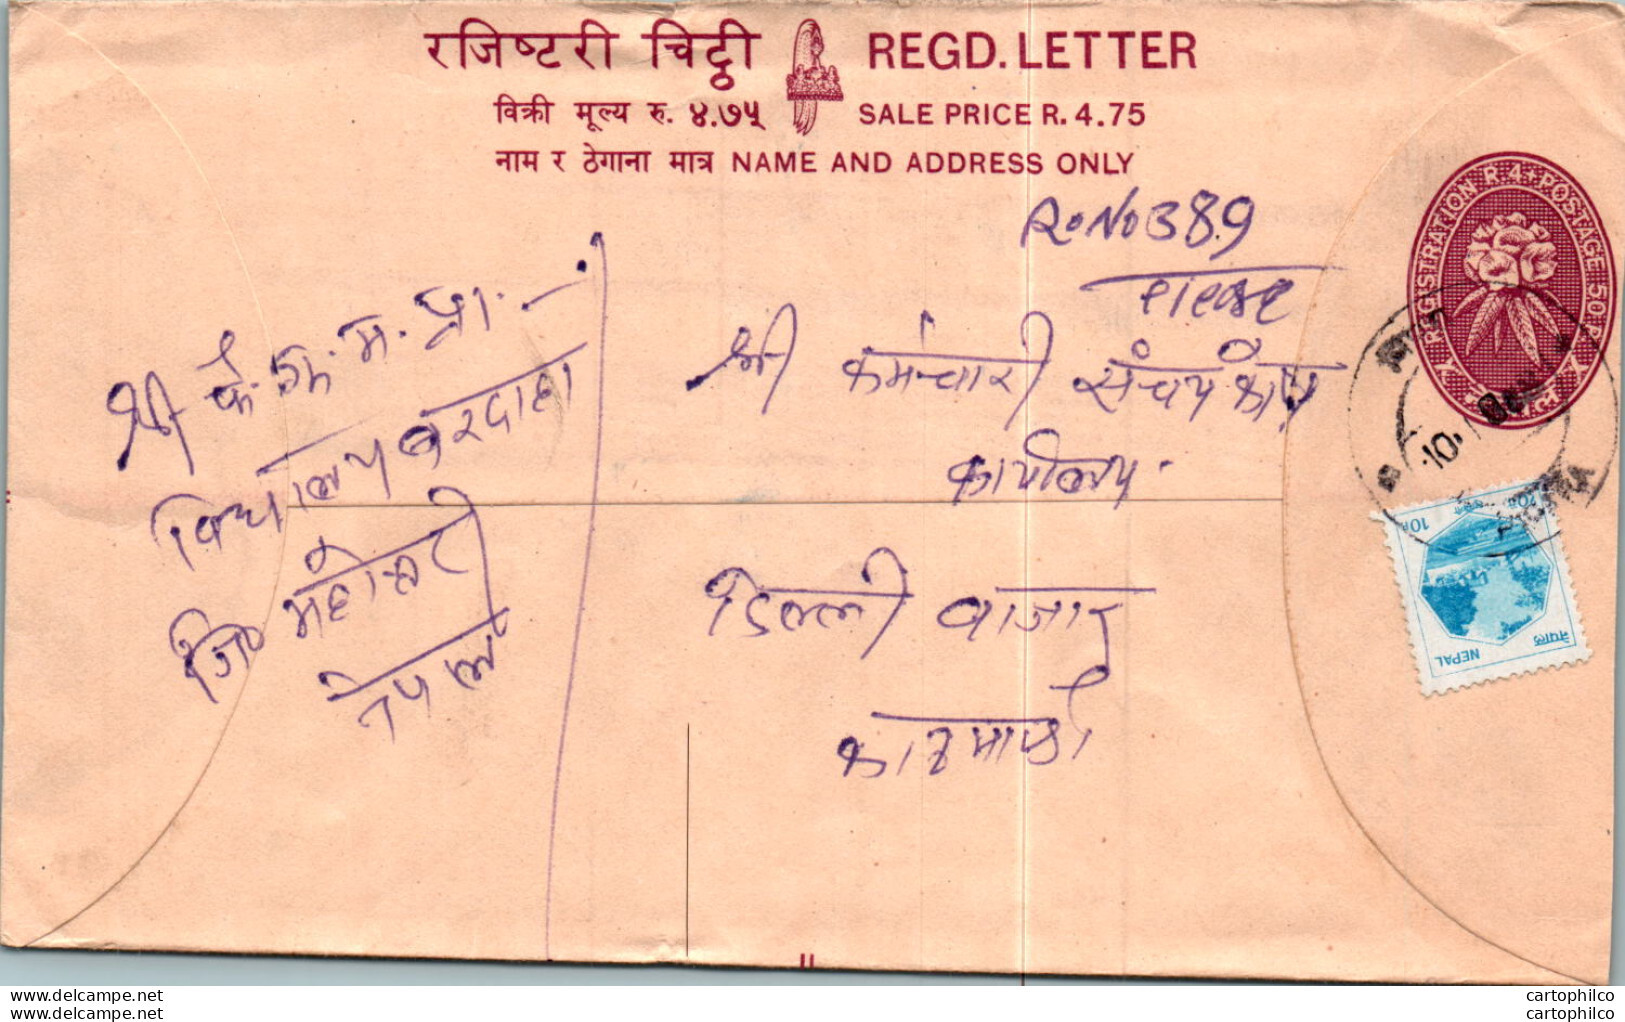 रजिष्टरी चिट्ठी REGD. LETTER
विक्री मूल्य रु. ४.७५ SALE PRICE R. 4.75
नाम र ठेगाना मात्र NAME AND ADDRESS ONLY
REGISTRATION R 4 POSTAGE 50 P
नेपाल
R.No 389
Please
श्री कर्मचारी संचय कोष
कार्यालय
डिल्ली बाजार
काठमाण्डौ
श्री के. म. प्रा.
विद्यालय बरदाहा
जि० महोत्तरी
नेपाल
10
10P
नेपाल
NEPAL
cartophilco
cartophilco
cartophilco
cartophilco